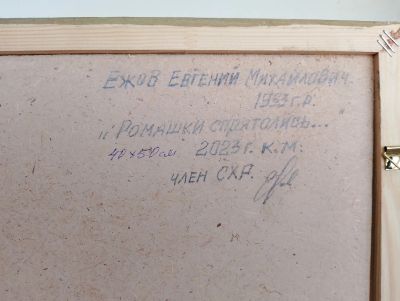 Ежов Евгений Михайлович.
1953 г.р.
„Ромашки спрятолись..."
40х50 см 2023 г. к.м.
член СХР.